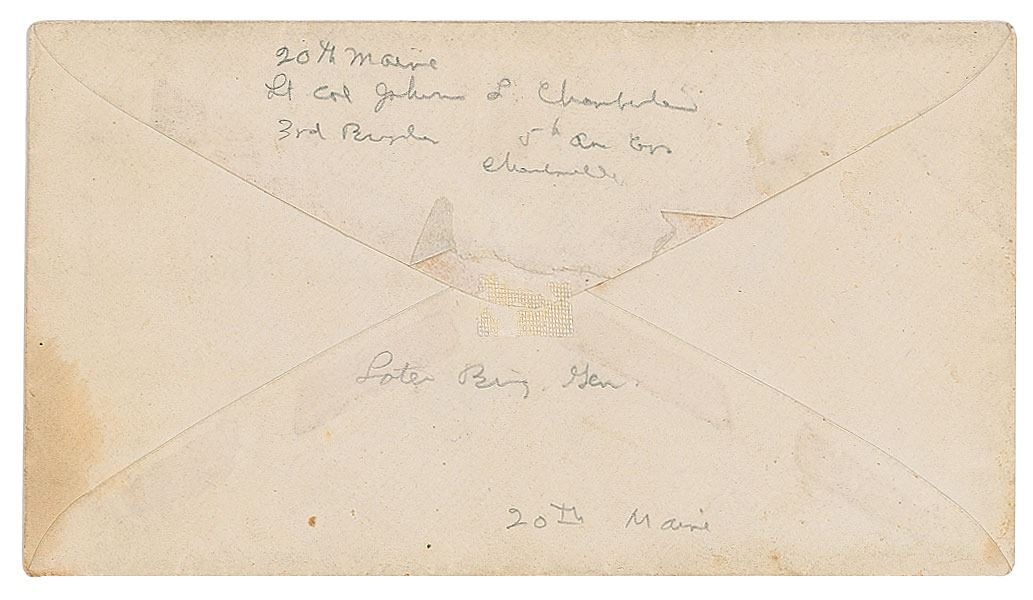 20th Maine
Lt Col Johua L. Chamberlain
3rd Brigade 5th Am Corps
Later Brig. Gen.
20Th Maine